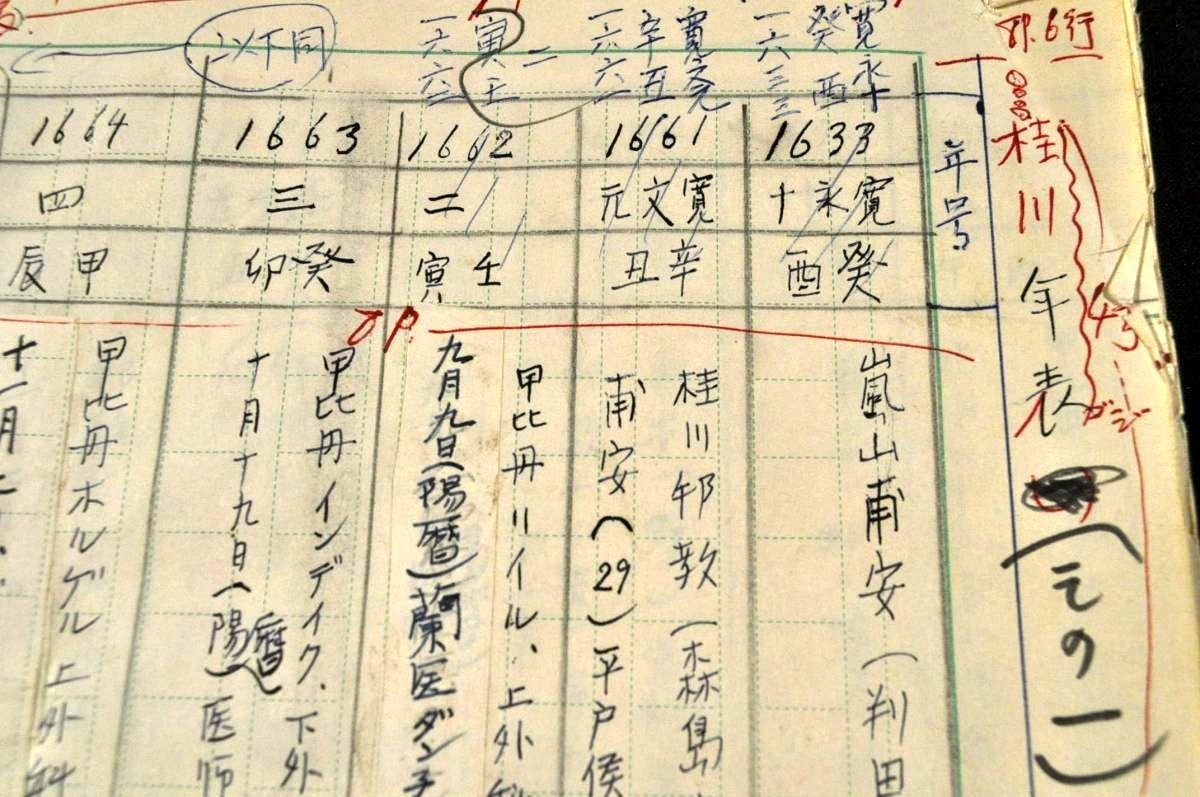 8P. 6行
桂川年表
(その一)
4号
ガジ
年号
寛永十
癸酉
一六三三
1633
寛永十
癸酉
嵐山甫安(判田
寛文元
辛丑
一六六一
1661
寛文元
辛丑
桂川邨教(森島
甫安(29)平戸侯
二
壬寅
一六六二
1662
二
壬寅
甲比丹リイル、上外
九月九日(陽暦)蘭医ダン
8P.
以下同
1663
三
癸卯
甲比丹インデイク、下外
十月十九日(陽暦)医師
1664
四
甲辰
甲比丹ホルゲル上外科
十一月